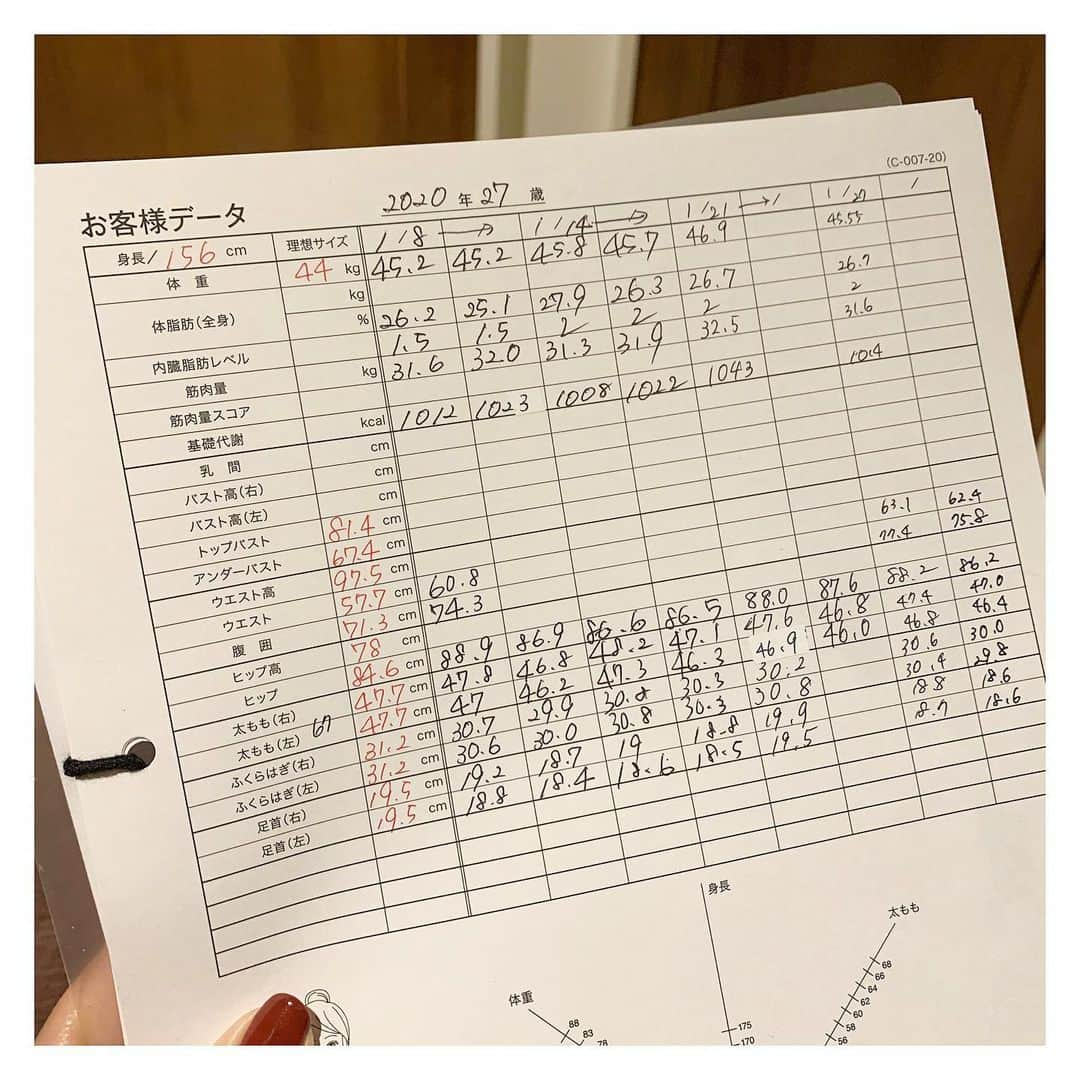 (C-007-20)
お客様データ 2020 年 27 歳
身長/156 cm 理想サイズ 1/8 → 1/14 → 1/21 → / 1/27 /
体 重 44 kg 45.2 45.2 45.8 45.7 46.9 45.55
体脂肪(全身) kg
% 26.2 25.1 27.9 26.3 26.7 26.7
内臓脂肪レベル 1.5 1.5 2 2 2 2
筋肉量 kg 31.6 32.0 31.3 31.9 32.5 31.6
筋肉量スコア
基礎代謝 kcal 1012 1023 1008 1022 1043
乳 間 cm
バスト高(右) cm
バスト高(左) cm
トップバスト 81.4 cm
アンダーバスト 67.4 cm
ウエスト高 97.5 cm
ウエスト 57.7 cm 60.8 63.1 62.4
腹 囲 71.3 cm 74.3 77.4 75.8
ヒップ高 78 cm
ヒップ 84.6 cm 88.9 86.9 86.6 86.5 88.0 87.6 88.2 86.2
太もも(右) 47.7 cm 47.8 46.8 48.2 47.1 47.6 46.8 47.4 47.0
太もも(左) 67 47.7 cm 47 46.2 47.3 46.3 46.9 46.0 46.8 46.4
ふくらはぎ(右) 31.2 cm 30.7 29.9 30.3 30.2 30.6 30.0
ふくらはぎ(左) 31.2 cm 30.6 30.0 30.8 30.3 30.8 30.4 29.8
足首(右) 19.5 cm 19.2 18.7 19 18.8 19.9 18.8 18.6
足首(左) 19.5 cm 18.8 18.4 18.6 18.5 19.5 18.7 18.6
身長
太もも
体重
88
83
78
175
170
68
66
64
62
60
58
56